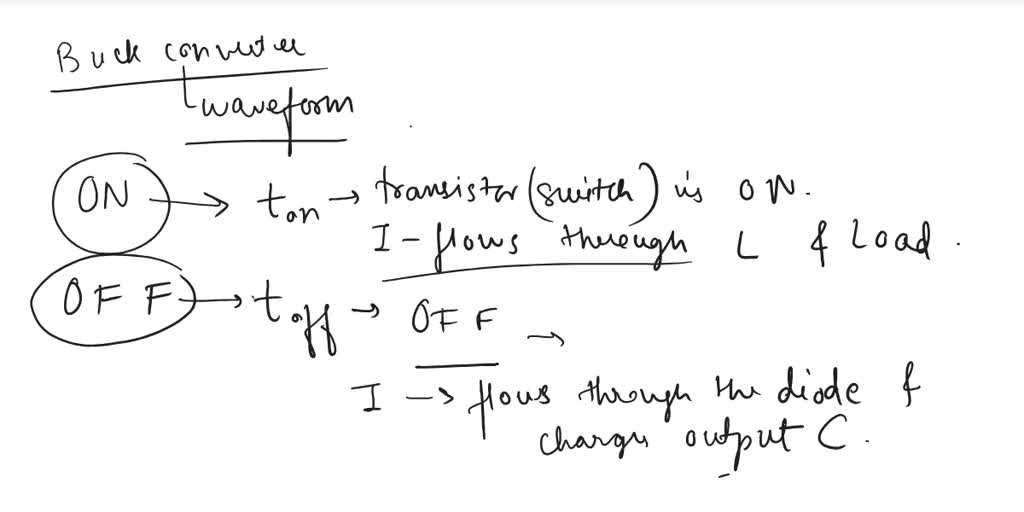 Buck converter
waveform
ON → ton → transistor (switch) is ON.
I - flows through L & Load.
OFF → toff → OFF →
I → flows through the diode &
charges output C.